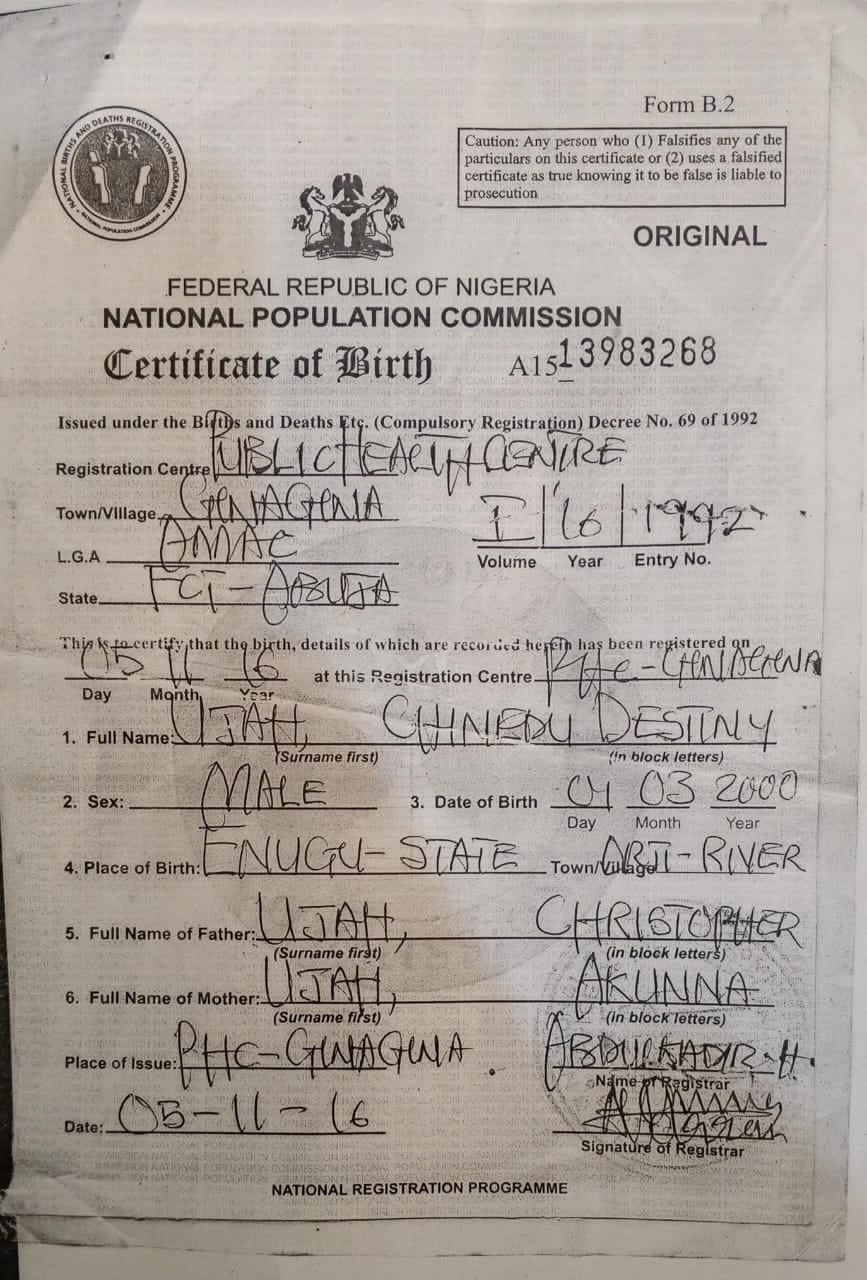 Form B.2
NATIONAL BIRTHS AND DEATHS REGISTRATION PROGRAMME
NATIONAL POPULATION COMMISSION
Caution: Any person who (1) Falsifies any of the
particulars on this certificate or (2) uses a falsified
certificate as true knowing it to be false is liable to
prosecution
ORIGINAL
FEDERAL REPUBLIC OF NIGERIA
NATIONAL POPULATION COMMISSION
Certificate of Birth A15 13983268
Issued under the Births and Deaths Etc. (Compulsory Registration) Decree No. 69 of 1992
Registration Centre PUBLIC HEALTH CENTRE
Town/Village GWAGWA
L.G.A AMAC
I 16 1992
Volume Year Entry No.
State FCT-ABUJA
This is to certify that the birth, details of which are recorded herein has been registered on
05 11 16 at this Registration Centre PHC-GWAGWA
Day Month Year
1. Full Name: UJAH, CHINEDU DESTINY
(Surname first) (in block letters)
2. Sex: MALE 3. Date of Birth 04 03 2000
Day Month Year
4. Place of Birth: ENUGU-STATE Town/Village ARJI-RIVER
5. Full Name of Father: UJAH, CHRISTOPHER
(Surname first) (in block letters)
6. Full Name of Mother: UJAH, AKUNNA
(Surname first) (in block letters)
Place of Issue: PHC-GWAGWA ABDULKADIR.H.
Name of Registrar
Date: 05-11-16
Signature of Registrar
NATIONAL REGISTRATION PROGRAMME